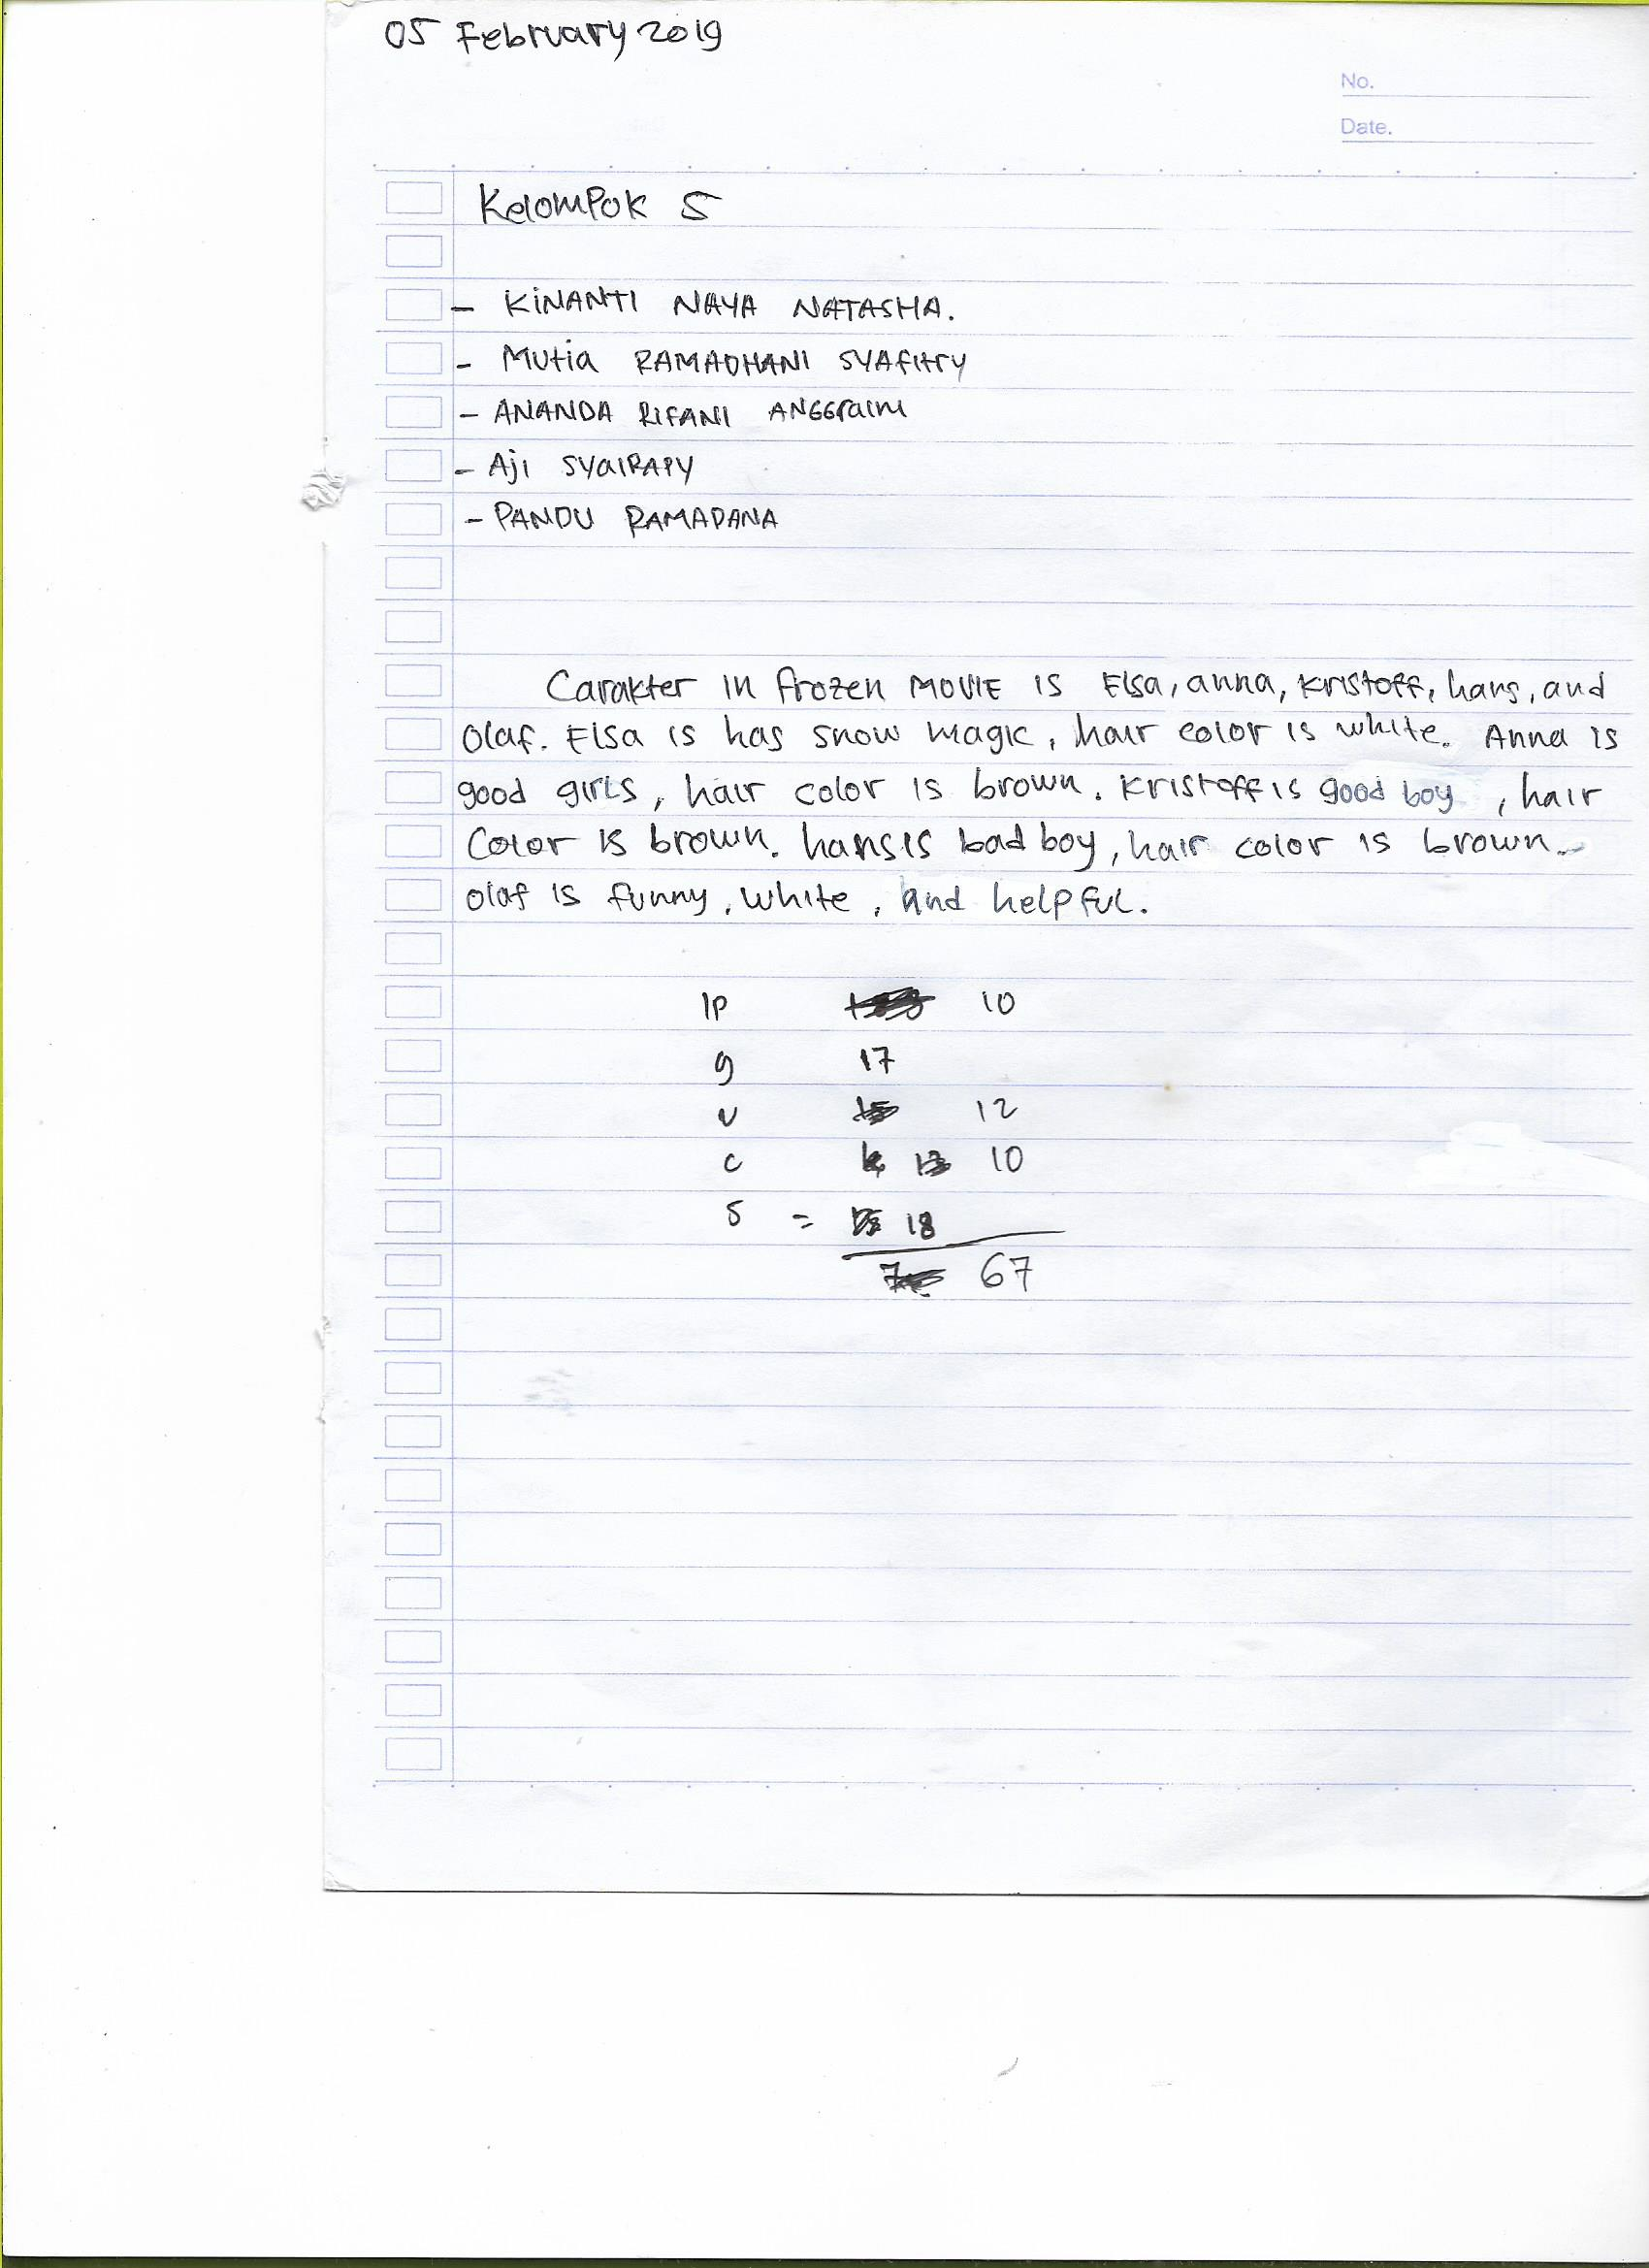 05 February 2019
No.
Date.
Kelompok 5
- KINANTI NAYA NATASHA.
- Mutia RAMADHANI SYAFitry
- ANANDA RIFANI ANGGraini
- Aji SYaiRAPY
- PANDU RAMADANA
Carakter in frozen MOVIE is Elsa, anna, Kristoff, hans, and
Olaf. Elsa is has snow magic, hair color is white. Anna is
good girls, hair color is brown. Kristoff is good boy , hair
Color is brown. hans is bad boy, hair color is brown.
Olaf is funny, white, and helpful.
10
g 17
v 12
c 10
S = 18
67